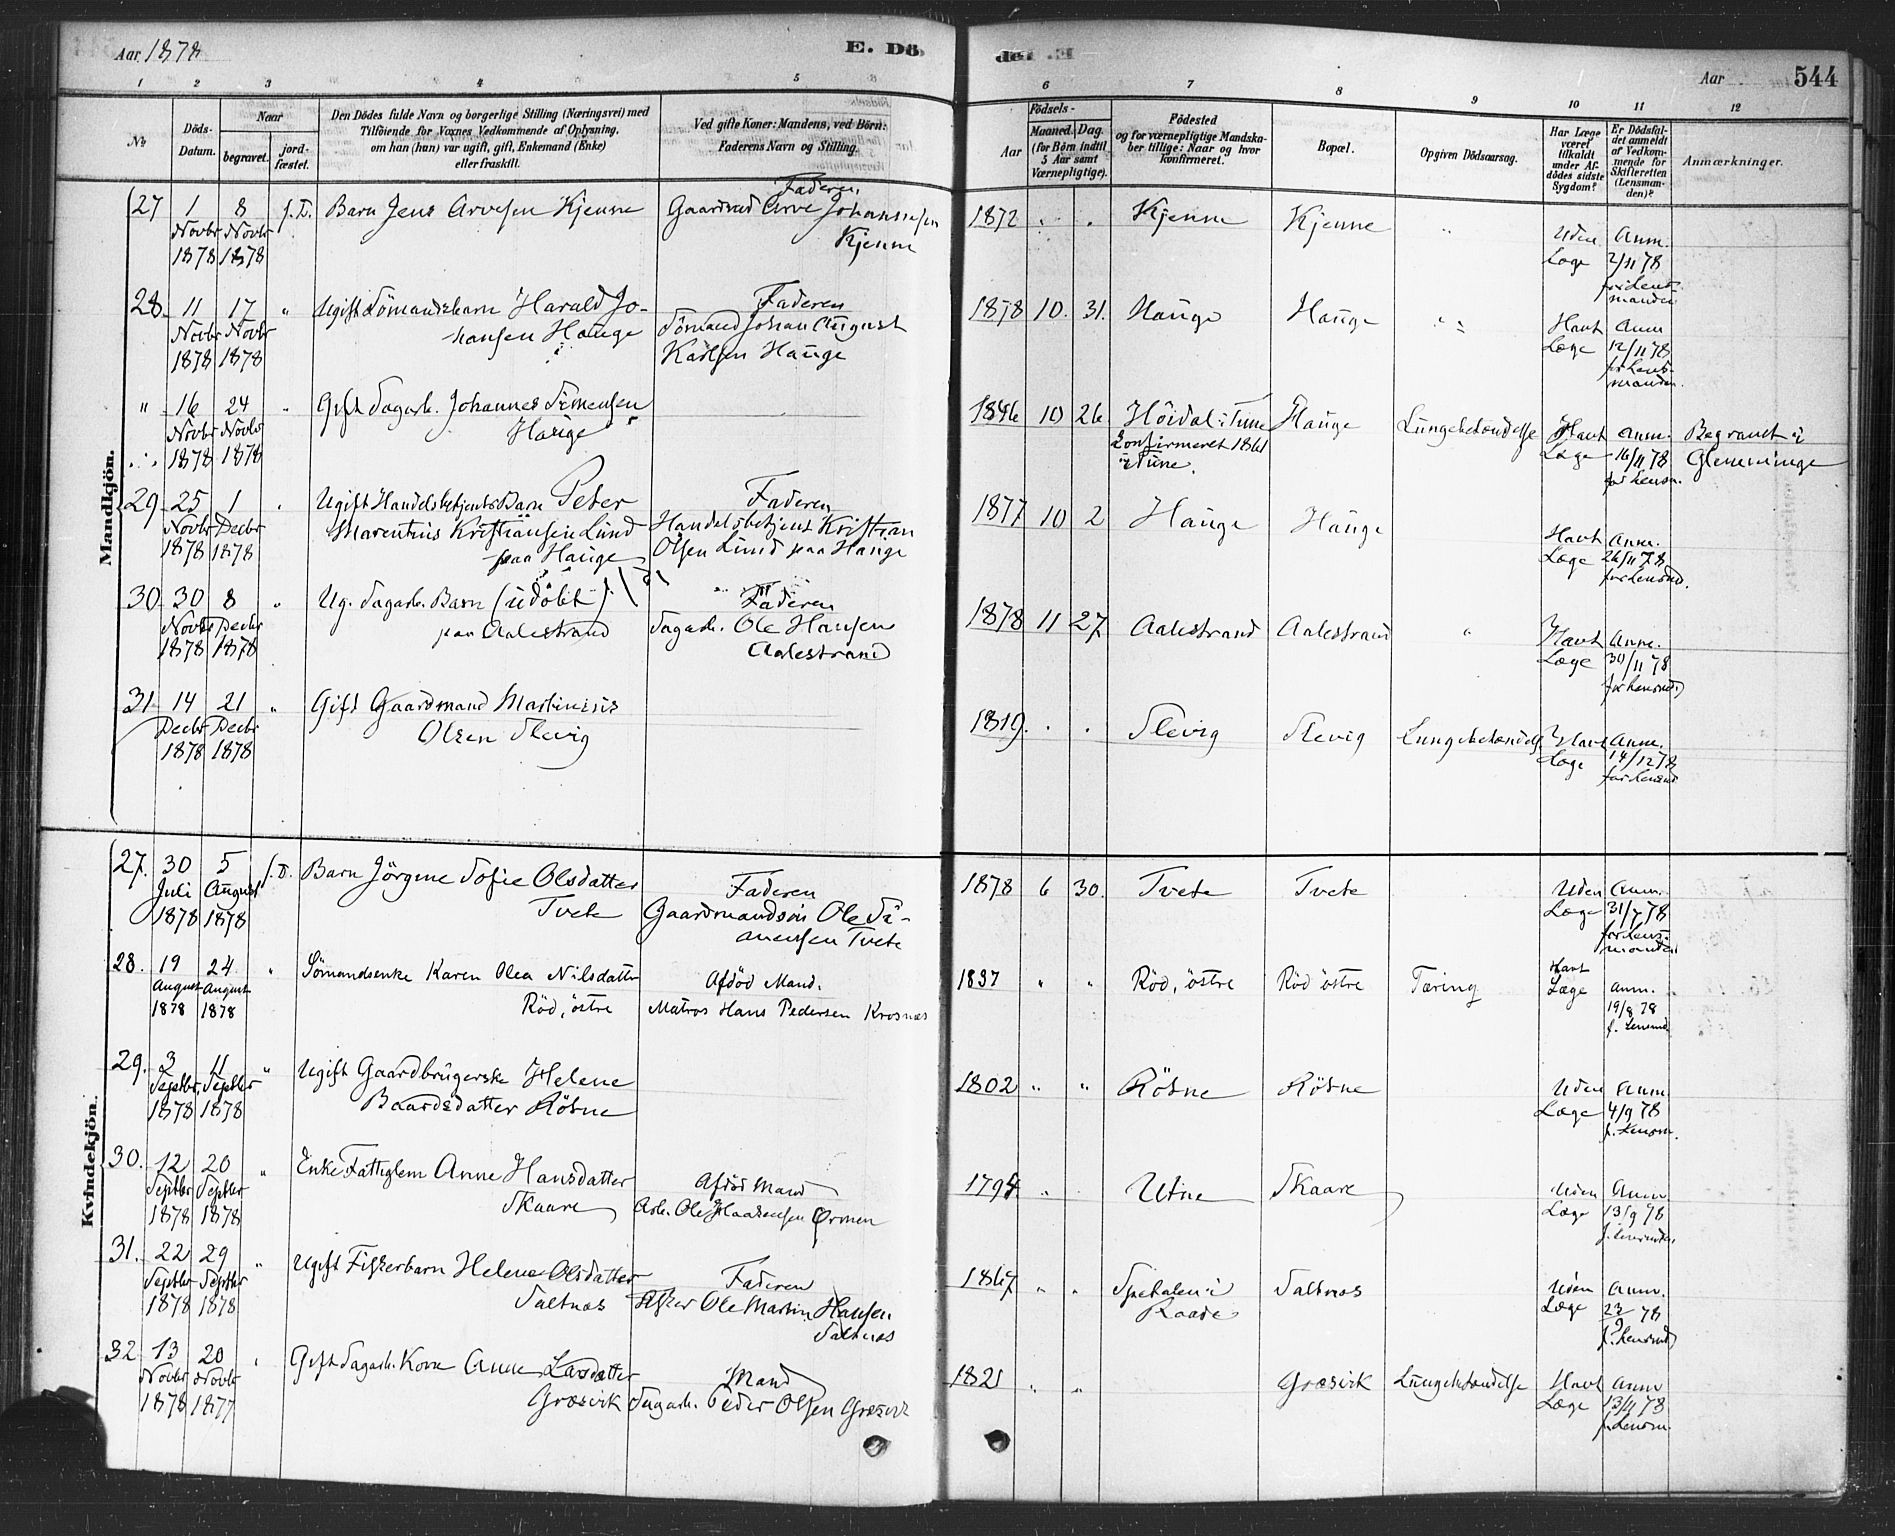 Aar 1878
E. Dö
de. E.
Aar
544
1 2 3 4 5 6 7 8 9 10 11 12
No
Döds-
Datum.
Naar
begravet.
jord-
fæstet.
Den Dödes fulde Navn og borgerlige Stilling (Næringsvei) med
Tilföiende for Voxnes Vedkommende af Oplysning,
om han (hun) var ugift, gift, Enkemand (Enke)
eller fraskilt.
Ved gifte Koner: Mandens, ved Börn:
Faderens Navn og Stilling.
Födsels-
Aar
Maaned. Dag.
(for Börn indtil
5 Aar samt
Værnepligtige).
Födested
og for værnepligtige Mandska-
ber tillige: Naar og hvor
konfirmeret.
Bopæl.
Opgiven Dödsaarsag.
Har Læge
været
tilkaldt
under Af-
dödes sidste
Sygdom?
Er Dödsfal-
det anmeldt
af Vedkom-
mende for
Skifteretten
(Lensman-
den)?
Anmærkninger.
Mandkjön.
27 1 8 f.D. Barn Jens Arvesen Kjenne
Novbr Novbr
1878 1878
Faderen
Gaardmd Arve Johannesen
Kjenne
1872 Kjenne Kjenne "
Uden Anm.
Læge 2/11 78
for Lens-
manden
28 11 17 " Ugift Sömandsbarn Harald Jo-
Novbr Novbr hansen Hauge
1878 1878
Faderen
Sömand Johan August
Karlsen Hauge
1878 10. 31. Hauge Hauge "
Havt Anm
Læge 12/11 78
for Lens-
manden.
" 16 24 " Gift Sagarb. Johannes Simensen
Novbr Novbr Hauge
1878 1878
1846 10 26 Höidal i Tune Hauge Lungebetændelse Havt Anm. Begravet i
Konfirmeret 1861 Læge 16/11 78 Glemminge
i Tune. for Lensm.
29 25 1 " Ugift Handelsbetjents Barn Peter
Novbr Decbr Marentius Kristiansen Lund
1878 1878 paa Hauge
Faderen
Handelsbetjent Kristian
Olsen Lund paa Hauge
1877 10 2 Hauge Hauge
Havt Anm.
Læge 26/11 78
for Lensmd.
30 30 8 " Ug. Sagarb. Barn (udöbt)
Novbr Decbr paa Aalestrand
1878 1878
Faderen
Sagarb. Ole Hansen
Aalestrand
1878 11 27 Aalestrand Aalestrand "
Havt Anm.
Læge 30/11 78
for Lensmd.
31 14 21 " Gift Gaardmand Martinius
Decbr Decbr Olsen Slevig
1878 1878
1819. Slevig Slevig Lungebetændelse Havt Anm.
Læge 14/12 78
for Lensmd
Kvindekjön.
27. 30 5 f.D. Barn Jörgine Sofie Olsdatter
Juli August Tvete
1878 1878
Faderen
Gaardmandsön Ole Si-
mensen Tvete
1878 6 30. Tvete Tvete
Uden Anm.
Læge 31/7 78
for Lens-
manden
28. 19 24 " Sömandsenke Karen Olea Nilsdatter
August August Röd, östre
1878 1878
Afdöd Mand.
Matros Hans Pedersen Krosnæs
1837 " " Röd, östre Röd östre Tæring
Havt
Læge Anm.
19/8 78
f. Lensmd.
29. 3 11 " Ugift Gaardbrugerske Helene
Septbr Septbr Baardsdatter Rösne
1878 1878
1802 " " Rösne Rösne
Uden Anm.
Læge 4/9 78
f. Lensm.
30. 12 20 " Enke Fattiglem Anne Hansdatter
Septbr Septbr Skaare
1878 1878
Afdöd Mand
Arb. Ole Haakensen Ørmen
1794 " Utne Skaare
Uden Anm
Læge 13/9 78
f. Lensmd.
31. 22 29 " Ugift Fiskerbarn Helene Olsdatter
Septbr Septbr Saltnæs
1878 1878
Faderen
Fisker Ole Martin Hansen
Saltnæs
1867 " " Spetalen i Saltnæs
Raade
Uden Anm.
Læge 23/9 78
f. Lensmd
32 13 20 " Gift Sagarb. Kone Anne Larsdatter
Novbr Novbr Græsvik
1878 1877
Mand
Sagarb. Peder Olsen Græsvik
1821 " " Græsvik Lungebetændelse Havt Anm
Læge 13/11 78
f. Lensm.